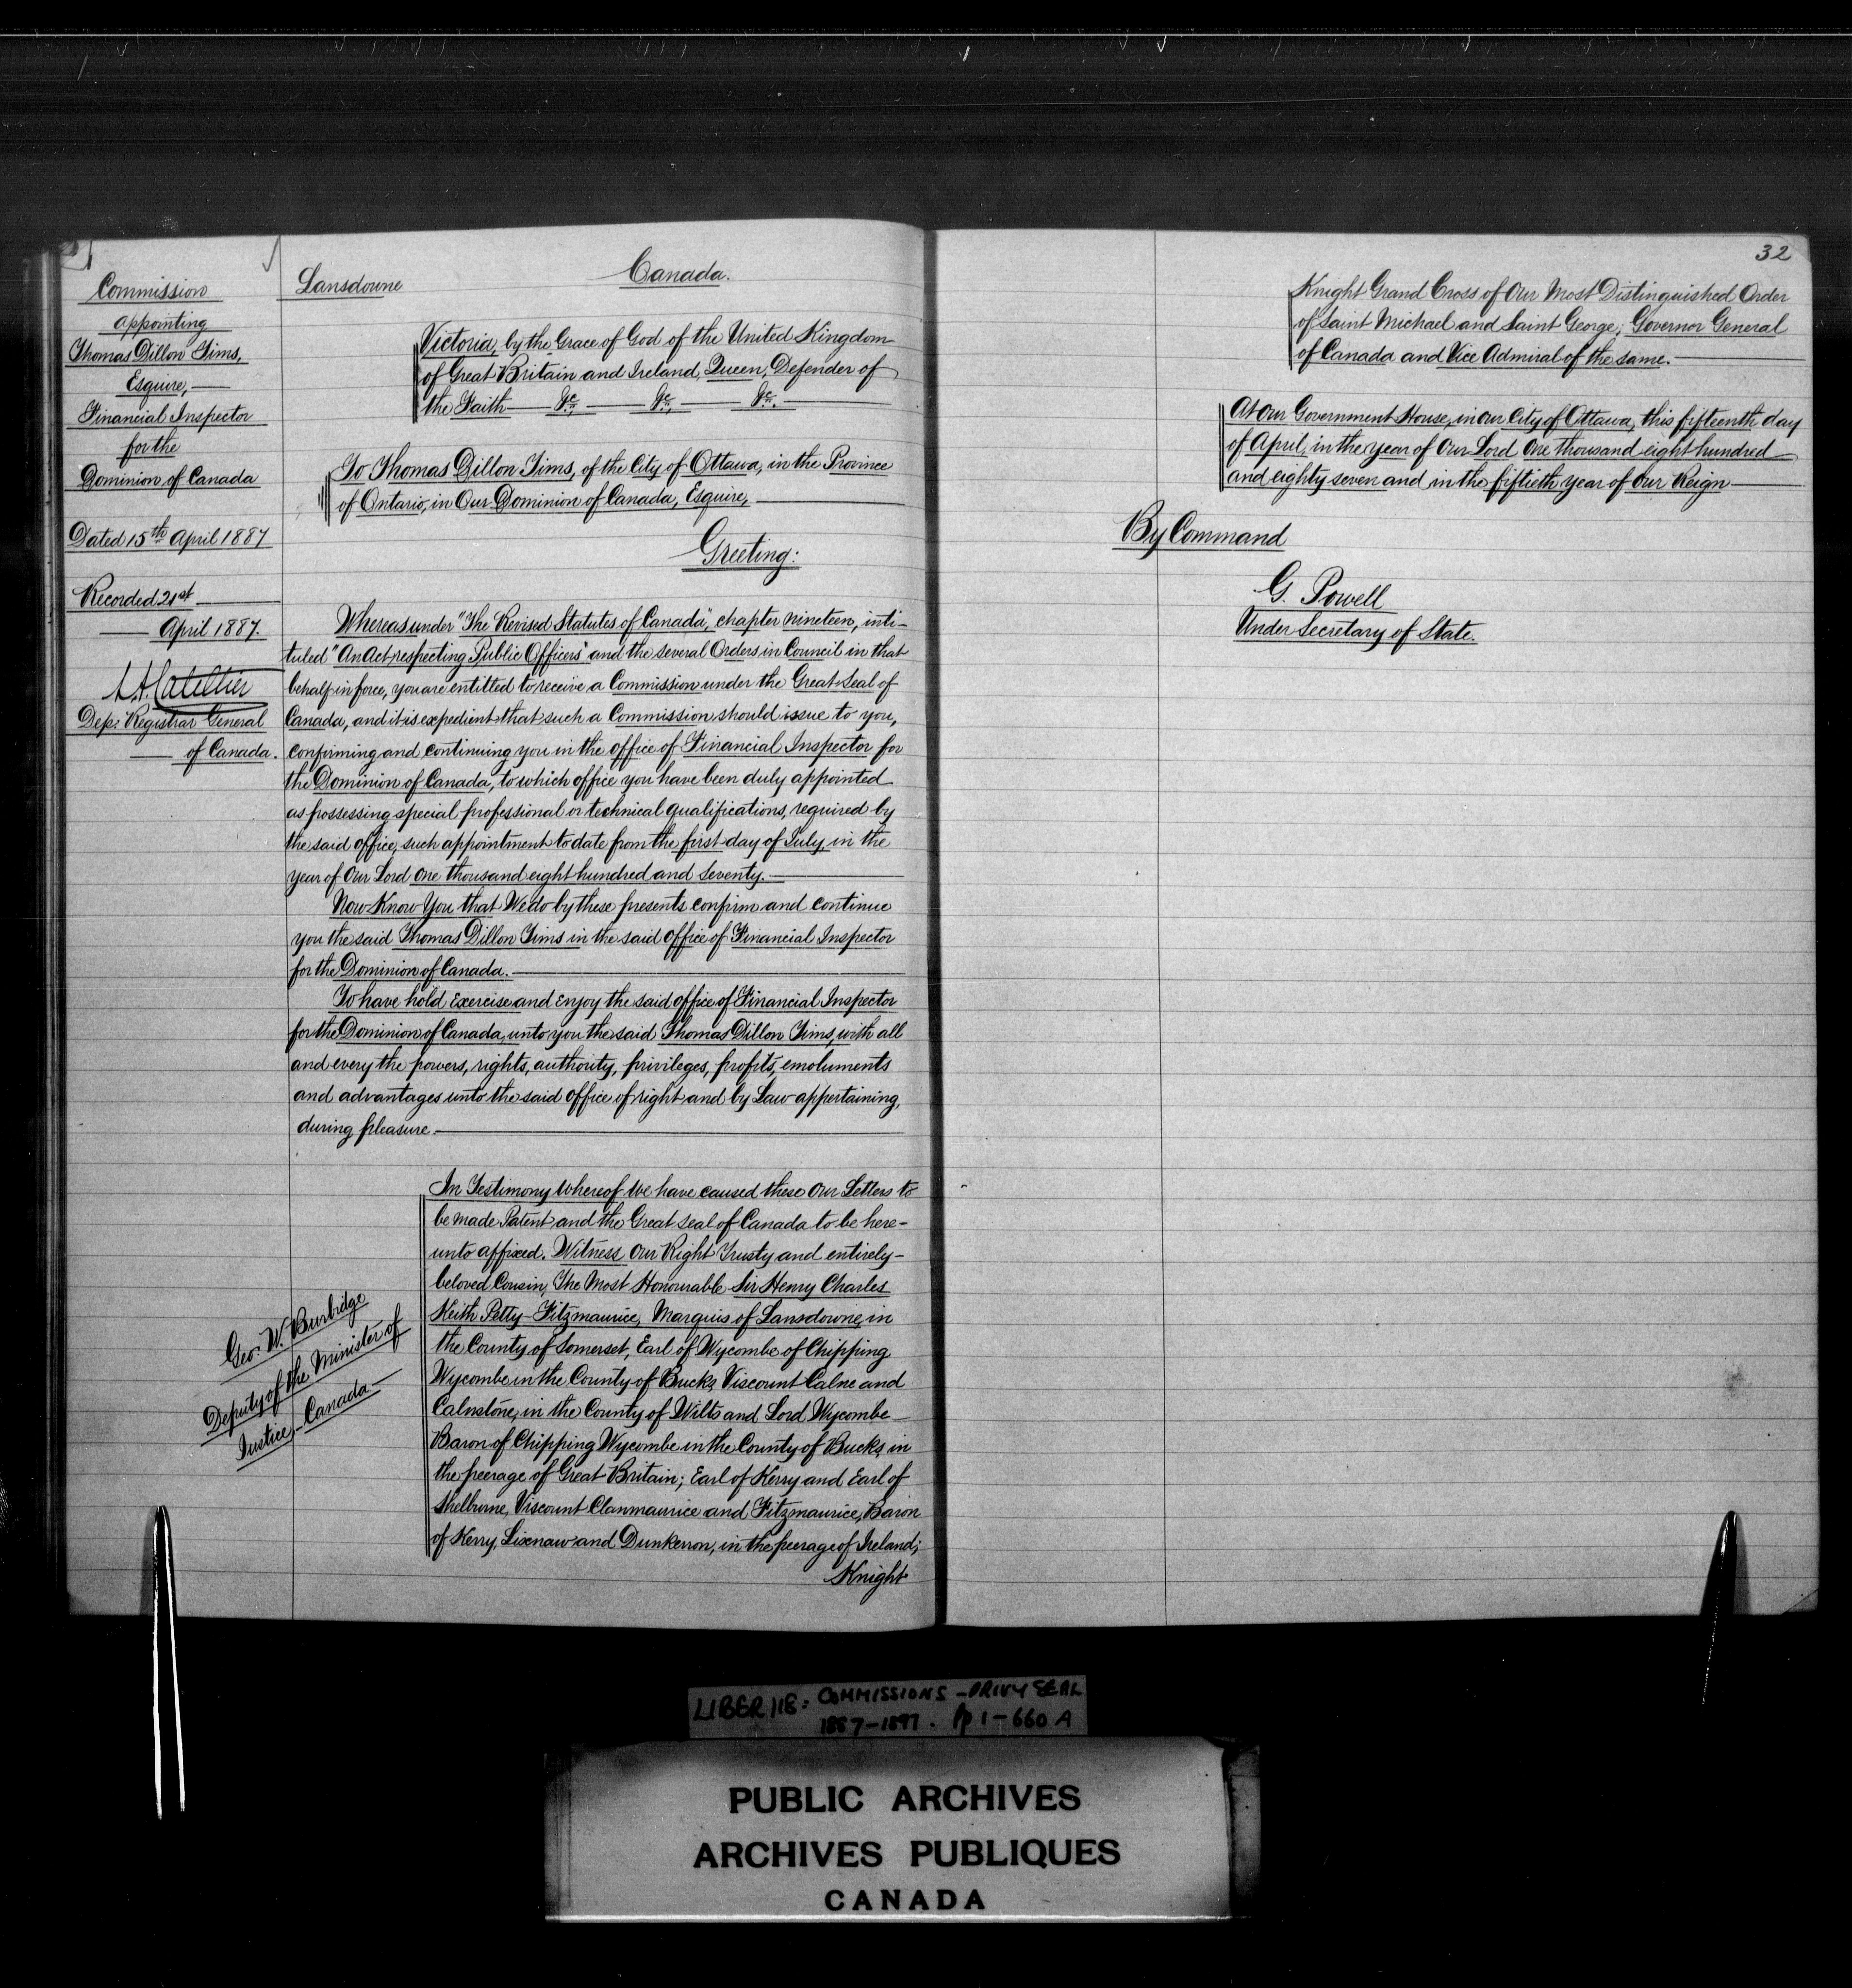 Commission
appointing
Thomas Dillon Tims,
Esquire,
Financial Inspector
for the
Dominion of Canada
Dated 15th April 1887
Recorded 21st
April 1887.
L.A. Catellier
Dep: Registrar General
of Canada.
Lansdowne
Canada.
Victoria, by the Grace of God of the United Kingdom
of Great Britain and Ireland, Queen, Defender of
the Faith &c. &c. &c.
To Thomas Dillon Tims, of the City of Ottawa, in the Province
of Ontario, in Our Dominion of Canada, Esquire,
Greeting:
Whereas under "The Revised Statutes of Canada," chapter nineteen, inti-
tuled "An Act respecting Public Officers" and the several Orders in Council in that
behalf in force, you are entitled to receive a Commission under the Great Seal of
Canada, and it is expedient that such a Commission should issue to you,
confirming and continuing you in the office of Financial Inspector for
the Dominion of Canada, to which office you have been duly appointed
as possessing special professional or technical qualifications, required by
the said office, such appointment to date from the first day of July, in the
year of Our Lord one thousand eight hundred and seventy.
Now Know You that We do by these presents confirm and continue
you the said Thomas Dillon Tims in the said office of Financial Inspector
for the Dominion of Canada.
To have hold exercise and enjoy the said office of Financial Inspector
for the Dominion of Canada, unto you the said Thomas Dillon Tims, with all
and every the powers, rights, authority, privileges, profits, emoluments
and advantages unto the said office of right and by Law appertaining,
during pleasure.
In Testimony Whereof We have caused these Our Letters to
be made Patent and the Great Seal of Canada to be here-
unto affixed. Witness Our Right Trusty and entirely-
beloved Cousin, The Most Honourable Sir Henry Charles
Keith Petty-Fitzmaurice, Marquis of Lansdowne, in
the County of Somerset, Earl of Wycombe of Chipping
Wycombe in the County of Bucks, Viscount Calne and
Calnstone, in the County of Wilts and Lord Wycombe
Baron of Chipping Wycombe in the County of Bucks, in
the peerage of Great Britain; Earl of Kerry and Earl of
Shelburne, Viscount Clanmaurice and Fitzmaurice, Baron
of Kerry, Lixnaw and Dunkerron, in the peerage of Ireland;
Knight
Geo. W. Burbidge
Deputy of the Minister of
Justice - Canada
32
Knight Grand Cross of Our Most Distinguished Order
of Saint Michael and Saint George; Governor General
of Canada and Vice Admiral of the same.
At Our Government House, in Our City of Ottawa, this fifteenth day
of April, in the year of Our Lord One thousand eight hundred
and eighty seven and in the fiftieth year of Our Reign
By Command
G. Powell
Under Secretary of State.
LIBER 118: COMMISSIONS - PRIVY SEAL
1887-1897. pp 1-660 A
PUBLIC ARCHIVES
ARCHIVES PUBLIQUES
CANADA